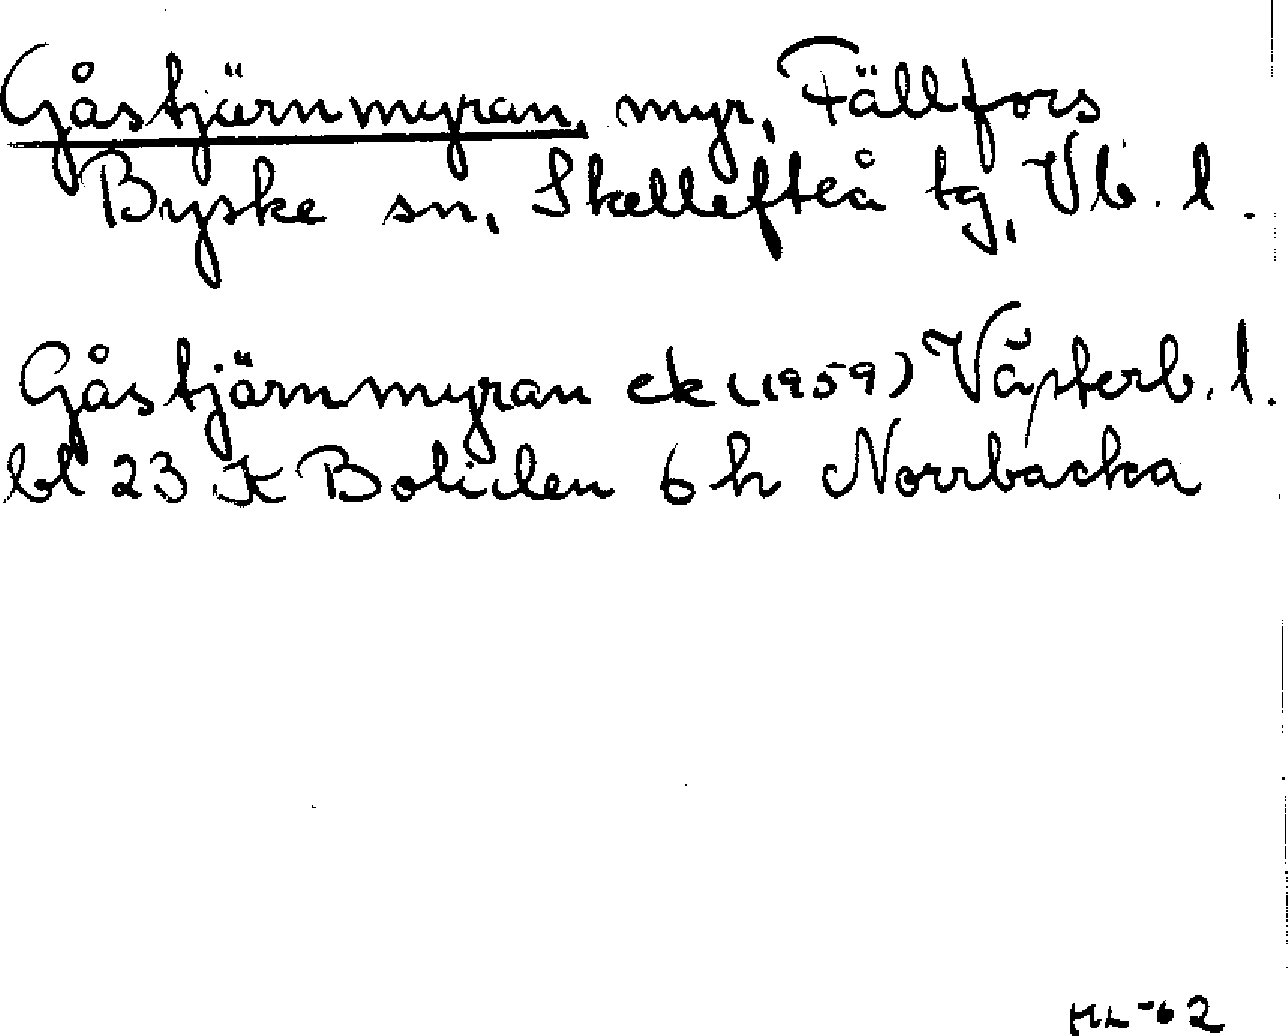 Gåstjärnmyran, myr, Fällfors
Byske sn, Skellefteå tg, Vb. l.
Gåstjärnmyran ek (1959) Västerb. l.
bl 23 K Boliden 6 h Norrbacka
HL -62